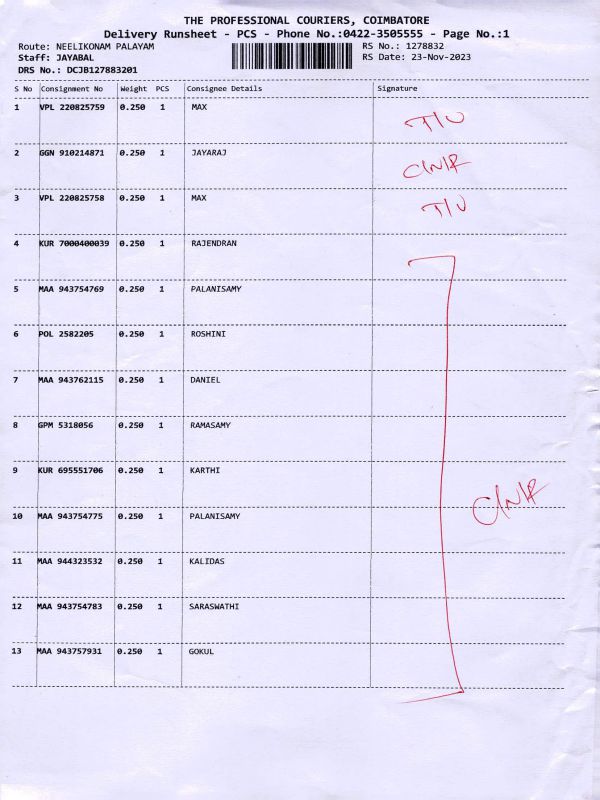 THE PROFESSIONAL COURIERS, COIMBATORE
Delivery Runsheet - PCS - Phone No.:0422-3505555 - Page No.:1
Route: NEELIKONAM PALAYAM
RS No.: 1278832
Staff: JAYABAL
RS Date: 23-Nov-2023
DRS No.: DCJB127883201
S No Consignment No Weight PCS Consignee Details Signature
1 VPL 220825759 0.250 1 MAX T/U
2 GGN 910214871 0.250 1 JAYARAJ C/N/R
3 VPL 220825758 0.250 1 MAX T/U
4 KUR 7000400039 0.250 1 RAJENDRAN
5 MAA 943754769 0.250 1 PALANISAMY
6 POL 2582205 0.250 1 ROSHINI
7 MAA 943762115 0.250 1 DANIEL
8 GPM 5318056 0.250 1 RAMASAMY
9 KUR 695551706 0.250 1 KARTHI
C/N/R
10 MAA 943754775 0.250 1 PALANISAMY
11 MAA 944323532 0.250 1 KALIDAS
12 MAA 943754783 0.250 1 SARASWATHI
13 MAA 943757931 0.250 1 GOKUL